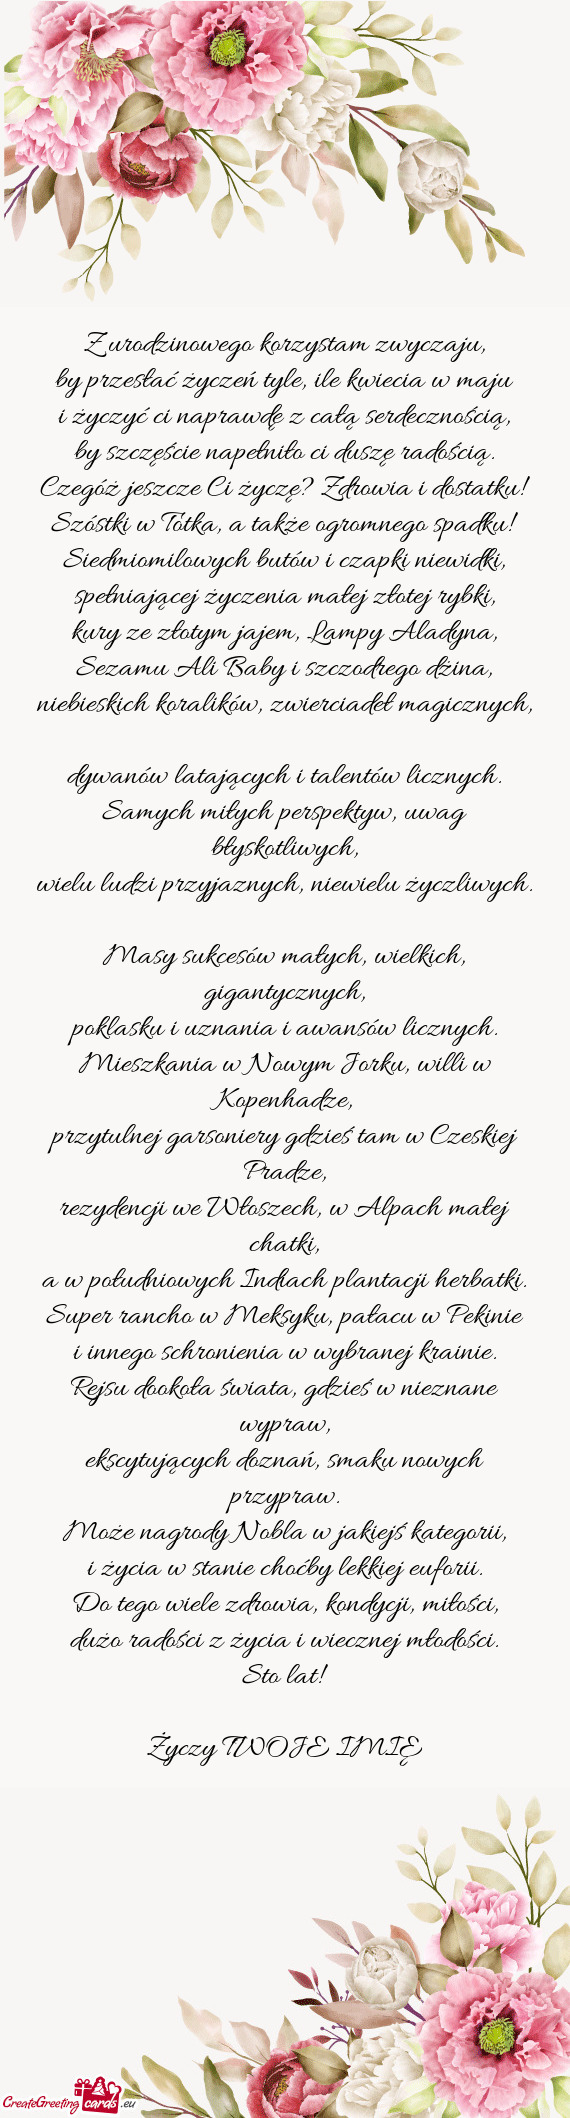 Z urodzinowego korzystam zwyczaju,
by przesłać życzeń tyle, ile kwiecia w maju
i życzyć ci naprawdę z całą serdecznością,
by szczęście napełniło ci duszę radością.
Czegóż jeszcze Ci życzę? Zdrowia i dostatku!
Szóstki w Totka, a także ogromnego spadku!
Siedmiomilowych butów i czapki niewidki,
spełniającej życzenia małej złotej rybki,
kury ze złotym jajem, Lampy Aladyna,
Sezamu Ali Baby i szczodrego dżina,
niebieskich koralików, zwierciadeł magicznych,
dywanów latających i talentów licznych.
Samych miłych perspektyw, uwag
błyskotliwych,
wielu ludzi przyjaznych, niewielu życzliwych.
Masy sukcesów małych, wielkich,
gigantycznych,
poklasku i uznania i awansów licznych.
Mieszkania w Nowym Jorku, willi w
Kopenhadze,
przytulnej garsoniery gdzieś tam w Czeskiej
Pradze,
rezydencji we Włoszech, w Alpach małej
chatki,
a w południowych Indiach plantacji herbatki.
Super rancho w Meksyku, pałacu w Pekinie
i innego schronienia w wybranej krainie.
Rejsu dookoła świata, gdzieś w nieznane
wypraw,
ekscytujących doznań, smaku nowych
przypraw.
Może nagrody Nobla w jakiejś kategorii,
i życia w stanie choćby lekkiej euforii.
Do tego wiele zdrowia, kondycji, miłości,
dużo radości z życia i wiecznej młodości.
Sto lat!
Życzy TWOJE IMIĘ
CreateGreeting cards .eu